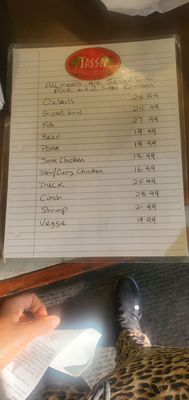 TASSA
All meals are served with
Rice and 2 sides options
Oxtails 28.99
Goat 24.99
Fish 27.99
Beef 19.99
Pork 19.99
Jerk Chicken 18.99
Stew/Curry Chicken 16.99
Duck 25.99
Conch 28.99
Shrimp 21.99
Veggie 19.99